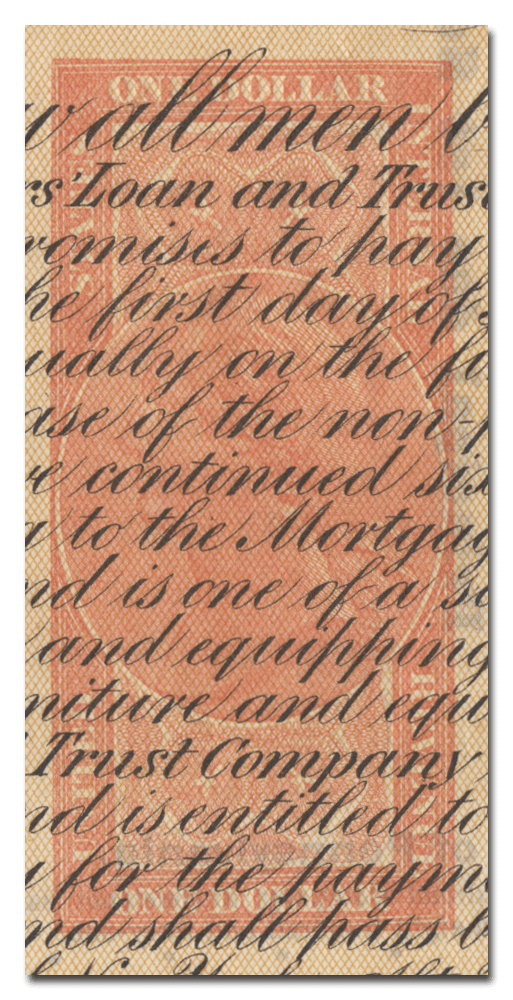 ONE DOLLAR
w all men b
rs' Loan and Trust
romises to pay
he first day of
ually on the fo
ase of the non-p
re continued six
g to the Mortgag
nd is one of a se
and equipping
niture and equi
Trust Company
nd is entitled to
y for the payme
ONE DOLLAR
nd shall pass b